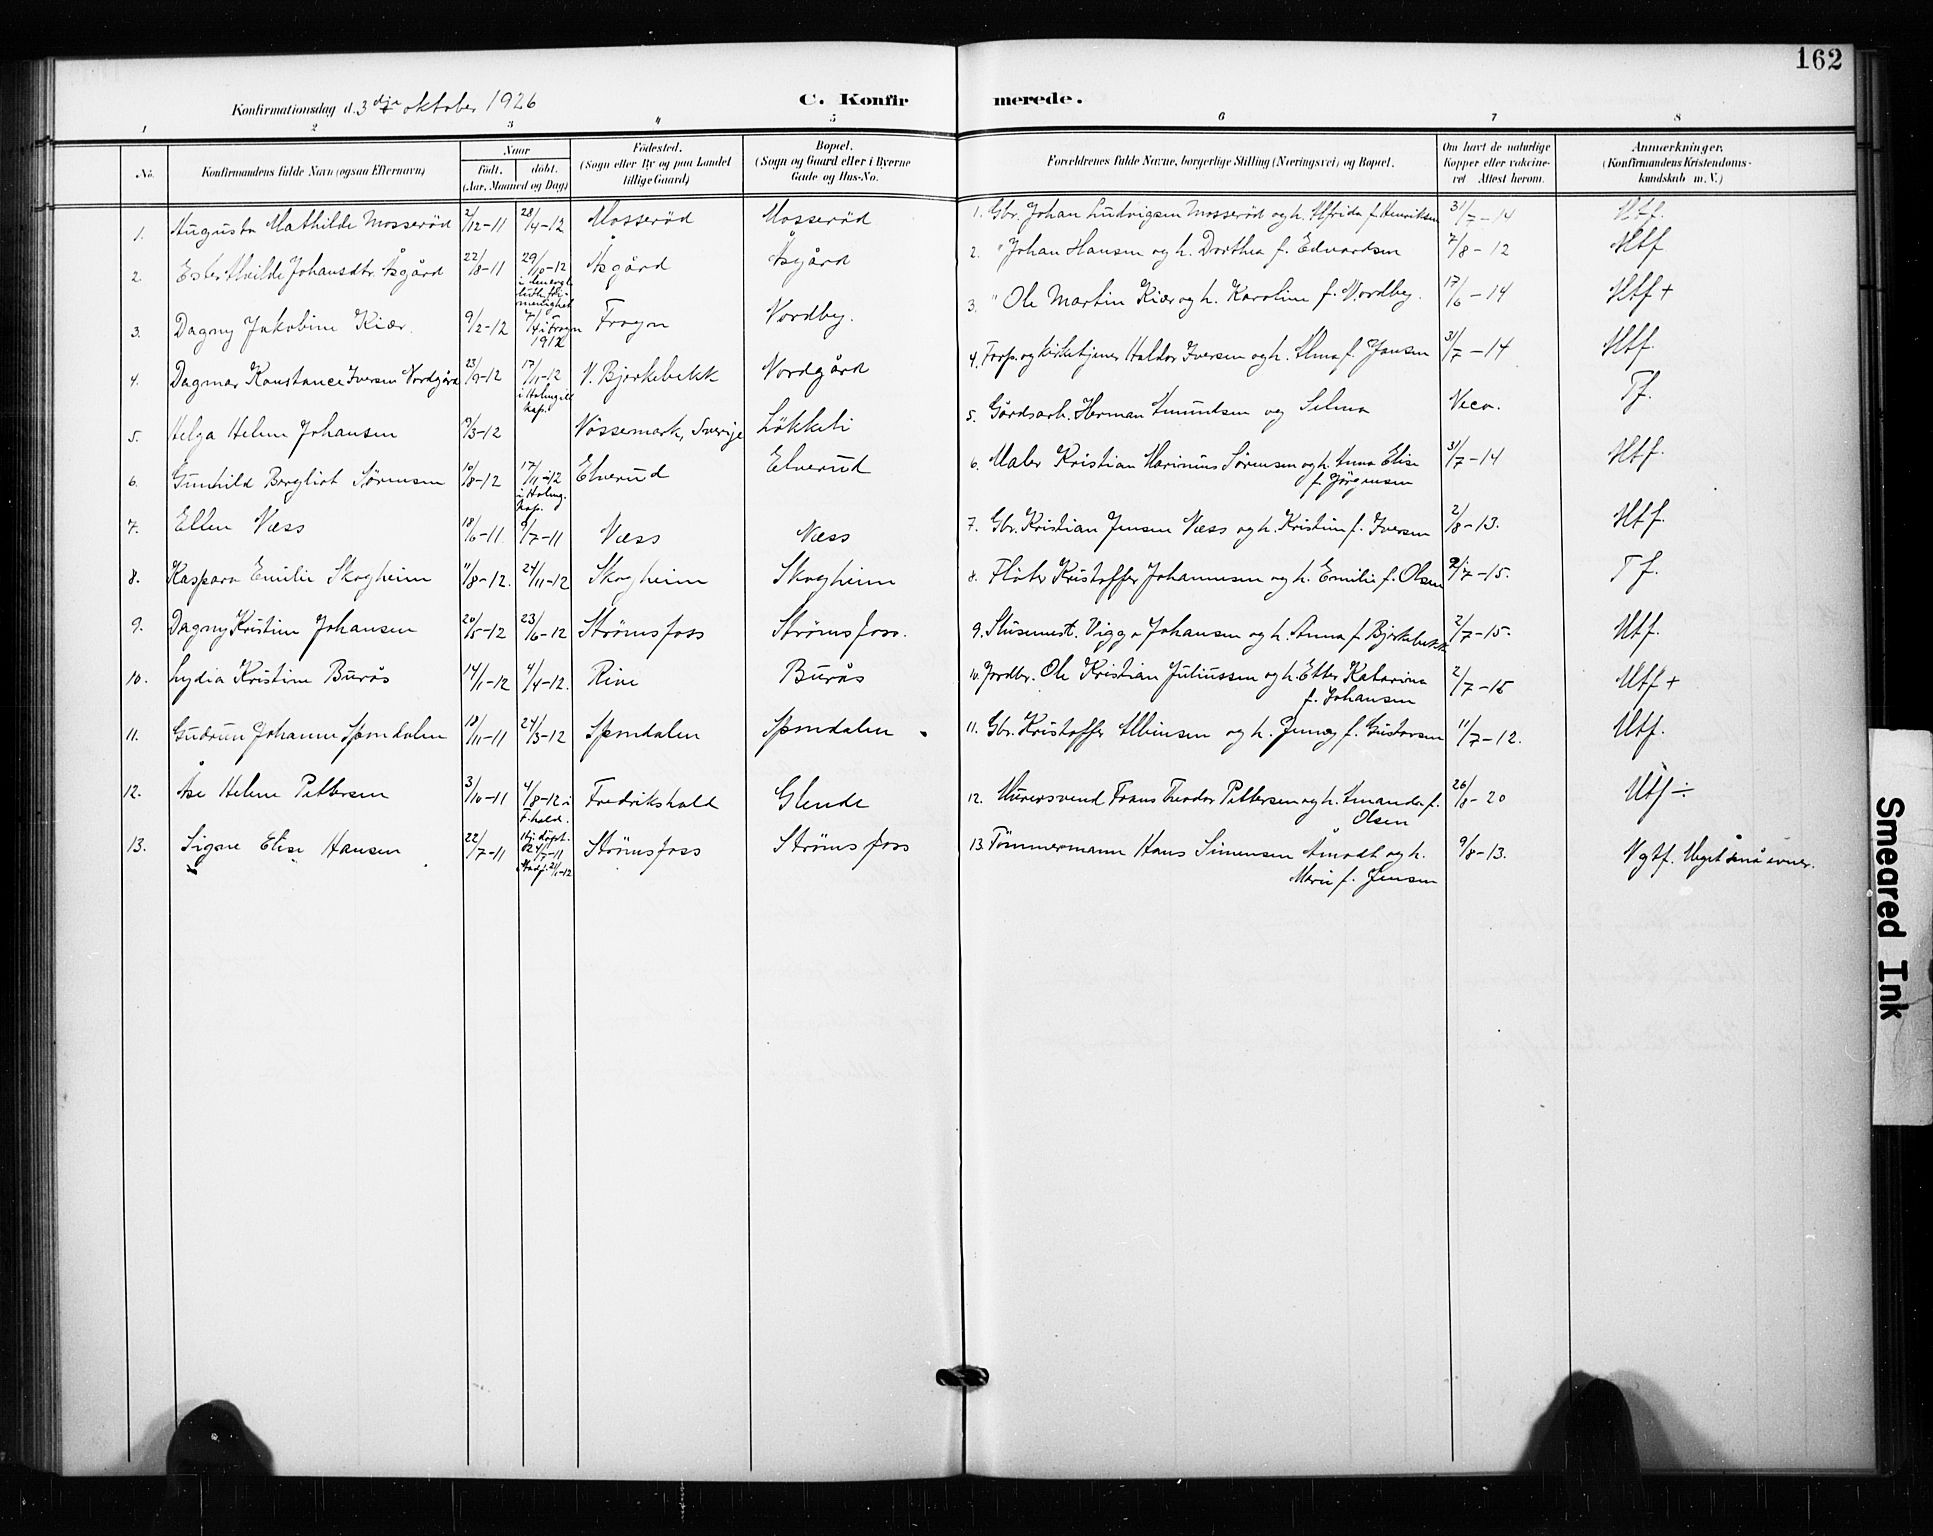 162
Konfirmationsdag d. 3dje oktober 1926
C. Konfirmerede.
1 2 3 4 5 6 7 8
No.
Konfirmandens fulde Navn (ogsaa Efternavn)
Naar
födt. döbt.
(Aar, Maaned og Dag)
Födested.
(Sogn eller By og paa Landet tillige Gaard)
Bopæl.
(Sogn og Gaard eller i Byerne Gade og Hus-No.
Forældrenes fulde Navne, borgerlige Stilling (Næringsvei) og Bopæl.
Om havt de naturlige Kopper eller vakcineret Attest herom.
Anmerkninger.
(Konfirmandens Kristendomskundskab m. V.)
1. Augusta Mathilde Mosseröd 2/12-11 28/4-12 Mosseröd Mosseröd 1. Gbr. Johan Ludvigsen Mosseröd og h. Alfrida f. Henriksen 31/7-14 Mtf.
2. Ester Alvilde Johansdtr. Åsgård 22/8-11 29/10-12 Åsgård Åsgård 2. " Johan Hansen og h. Dorthea f. Edvardsen 7/8-12 Mtf
3. Dagny Jakobine Kiær. 9/2-12 7/4 i Frogn 1912 Frogn Nordby. 3. " Ole Martin Kiær og h. Karoline f. Nordby. 17/6-14 Mtf +
4. Dagmar Konstance Iversen Nordgård 23/9-12 17/11-12 i Holmgil kap. N. Bjerkebekk Nordgård 4. Forp. og kirketjener Haldor Iversen og h. Alma f. Jansen 31/7-14 Mtf.
5. Helga Helene Johansen 9/3-12 Nössemark, Sverige Løkkeli 5. Gårdsarb. Herman Amundsen og Selma Tf.
6. Gunhild Bergliot Sørensen 10/8-12 17/11-12 i Holmg. kap. Elverud Elverud 6. Maler Kristian Marinius Sørensen og h. Anna Elise f. Jørgensen 31/7-14 Mtf.
7. Ellen Næss 18/6-11 9/7-11 Næss Næss 7. Gbr. Kristian Jensen Næss og h. Kristine f. Iversen 2/8-13. Mtf.
8. Kaspara Emilie Skogheim 11/8-12. 24/11-12 Skogheim Skogheim 8. Fløter Kristoffer Johannesen og h. Emilie f. Olsen 2/7-15. Tf.
9. Dagny Kristine Johansen 20/5-12 23/6-12 Strømsfoss Strømsfoss. 9. Slusemest. Viggo Johansen og h. Anna f. Bjerkebekk 2/7-15. Mtf.
10. Lydia Kristine Burås 14/1-12 4/4-12. Rive Burås 10. Jordbr. Ole Kristian Juliussen og h. Etter Katarina f. Johansen 2/7-15 Mtf +
11. Gudrun Johanne Spondalen 10/11-11 24/3-12 Spondalen Spondalen 11. Gbr. Kristoffer Albinsen og h. Jenny f. Gustavsen 11/7-12. Mtf.
12. Åse Helene Pettersen 3/10-11 4/8-12 i F.hald. Fredrikshald Glende 12. Murersvend Frans Theodor Pettersen og h. Amanda f. Olsen 26/8-20 Mtf ÷
13. Signe Elise Hansen 22/7-11 Hj.døpt. 24/7-11 Stadf. 21/1-12 Strømsfoss Strømsfoss 13. Tømmermann Hans Simensen Åmodt og h. Marie f. Jensen 9/8-13. Ngtf. Meget små evner.
Smeared Ink